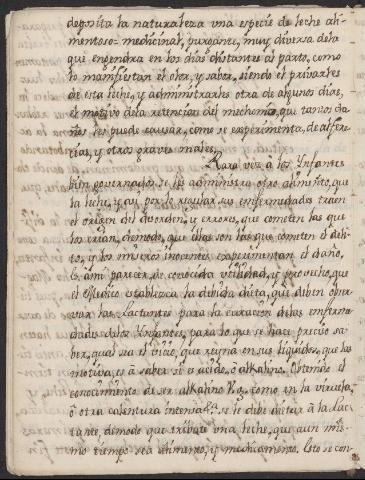 deposita la naturaleza una especie de leche ali-
mentoso-medicinal, purgante, muy diversa de la
que engendra en los dias distantes al parto, como
lo manifiestan el olor, y sabor, siendo el privarles
de esta leche, y administrarles otra de algunos dias,
el motivo de la retencion del mechonio, que tantos da-
ños les puede causar, como se esperimenta, de alfere-
cias, y otros graves males.
Rara vez à los Ynfantes
bien governados se les administra otro alimento, que
la leche, y asi por lo regular sus enfermedades traen
el origen del desorden, y errores, que cometen las que
los crian, demodo, que ellas son las que cometen el deli-
to, y los mísero inocentes experimentan el daño.
Es à mi parecer de conocida utilidad, y provecho, que
el Medico establezca la debida dieta, que deben obser-
var las Lactantes para la curacion de las enferme-
dades de los Ynfantes, para lo que se hace preciso sa-
ber, qual sea el vicio, que reyna en sus liquidos, que las
motiva, es à saber si es acido, ò alkalino. Obtenido el
conocimiento de ser alkalino V.g. como en la viruela,
ò otra calentura intensa &c. se le debe dictar à la Lac-
tante, demodo que tribute una leche, que aun mis-
mo tiempo sea alimento, y medicamento. Esto se con-